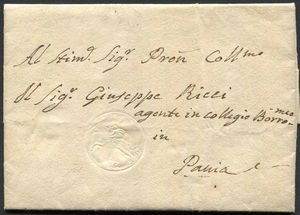 Al Stim.o Sig.r Pron Coll.mo
Il Sig.r Giuseppe Ricci
agente in collegio Borro-
meo
in
Pavia